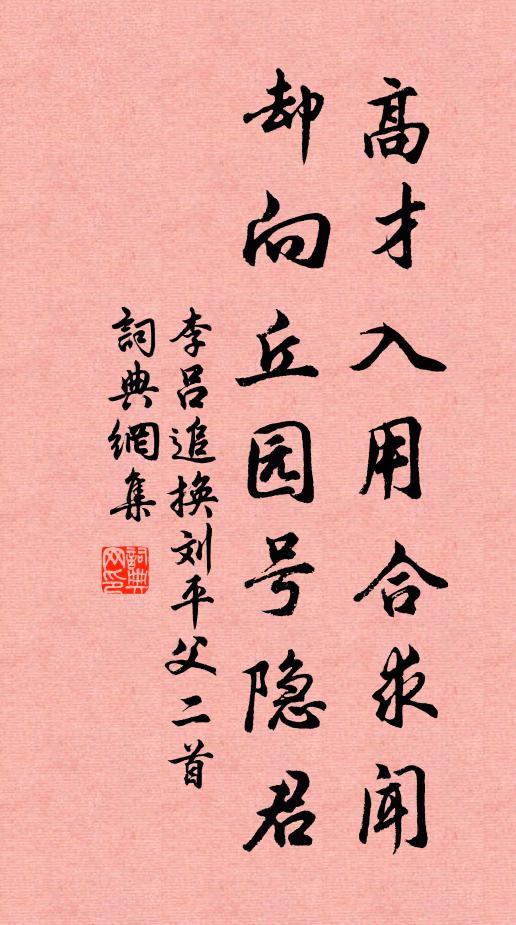 高才入用合求闻
却向丘园号隐君
李吕追换刘平父二首
詞典網集
詞典网印